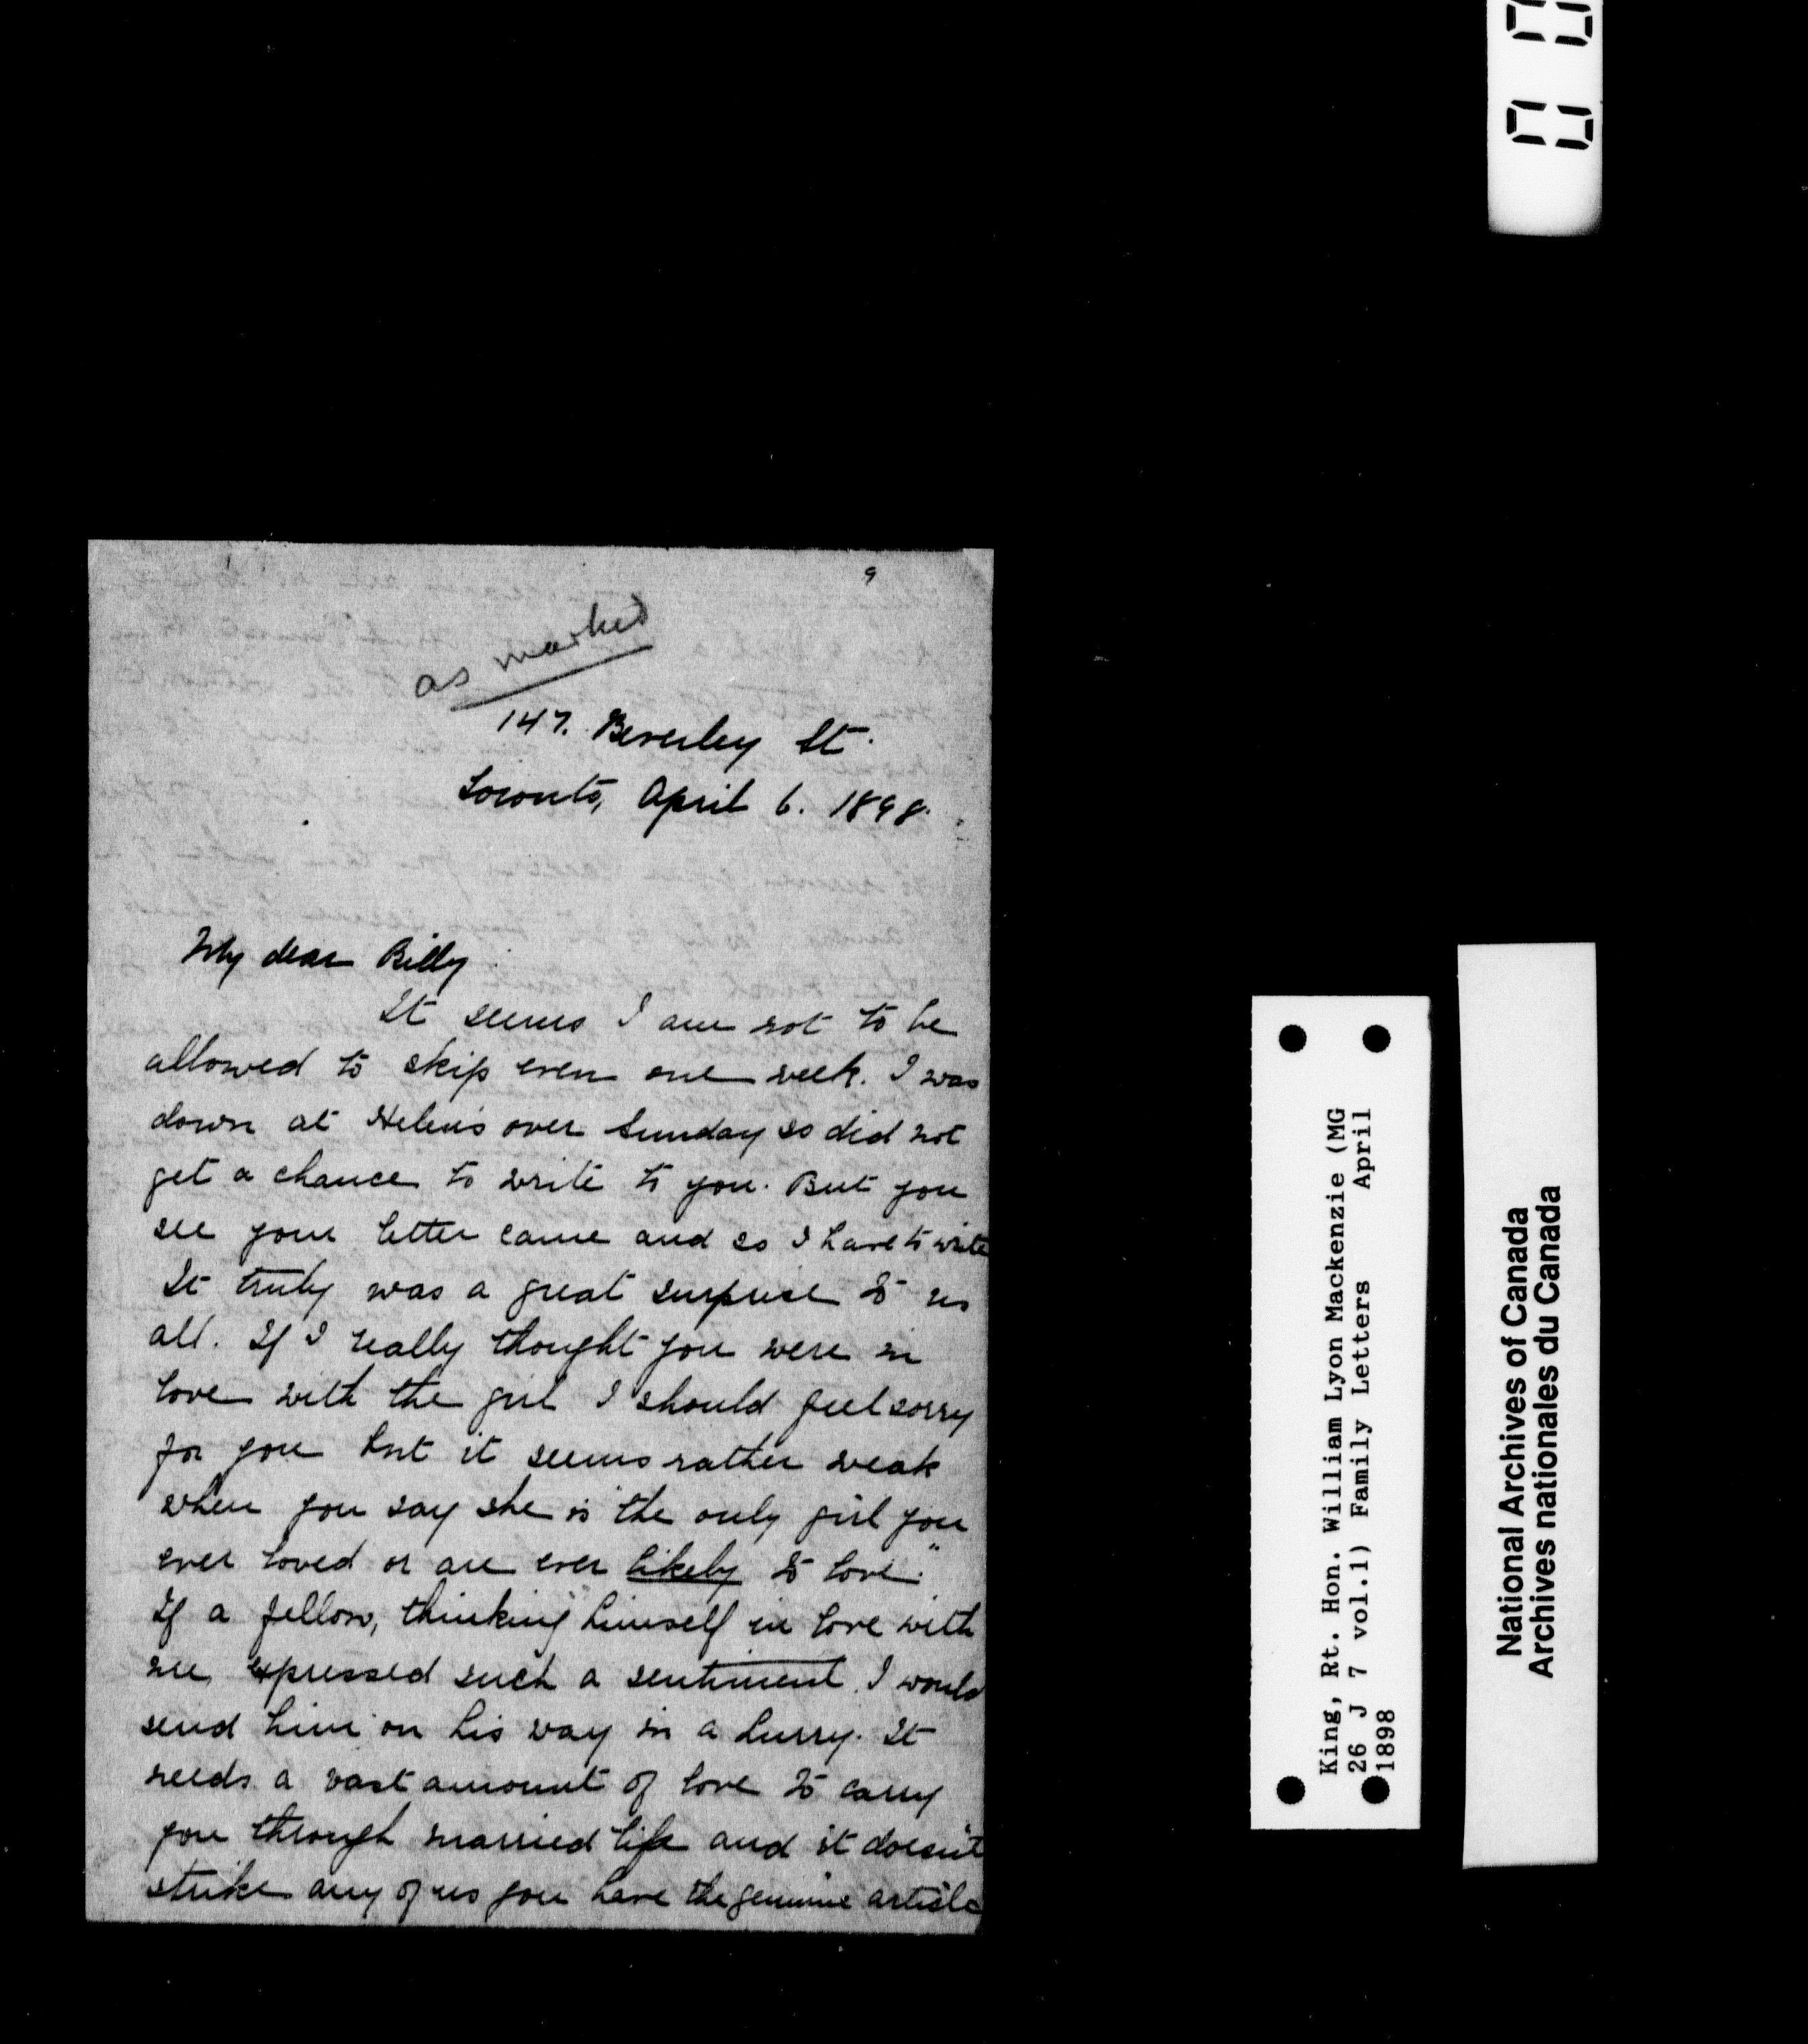 9
as marked
147. Beverley St.
Toronto, April 6. 1898.
My dear Billy
It seems I am not to be
allowed to skip even one week. I was
down at Helen's over Sunday so did not
get a chance to write to you. But you
see your letter came and so I have to write
It truly was a great surprise to us
all. If I really thought you were in
love with the girl I should feel sorry
for you but it seems rather weak
when you say she is "the only girl you
ever loved or are ever likely to love."
If a fellow, thinking himself in love with
me, expressed such a sentiment I would
send him on his way in a hurry. It
needs a vast amount of love to carry
you through married life and it doesn't
strike any of us you have the genuine article
King, Rt. Hon. William Lyon Mackenzie (MG
26 J 7 vol.1) Family Letters April
1898
National Archives of Canada
Archives nationales du Canada